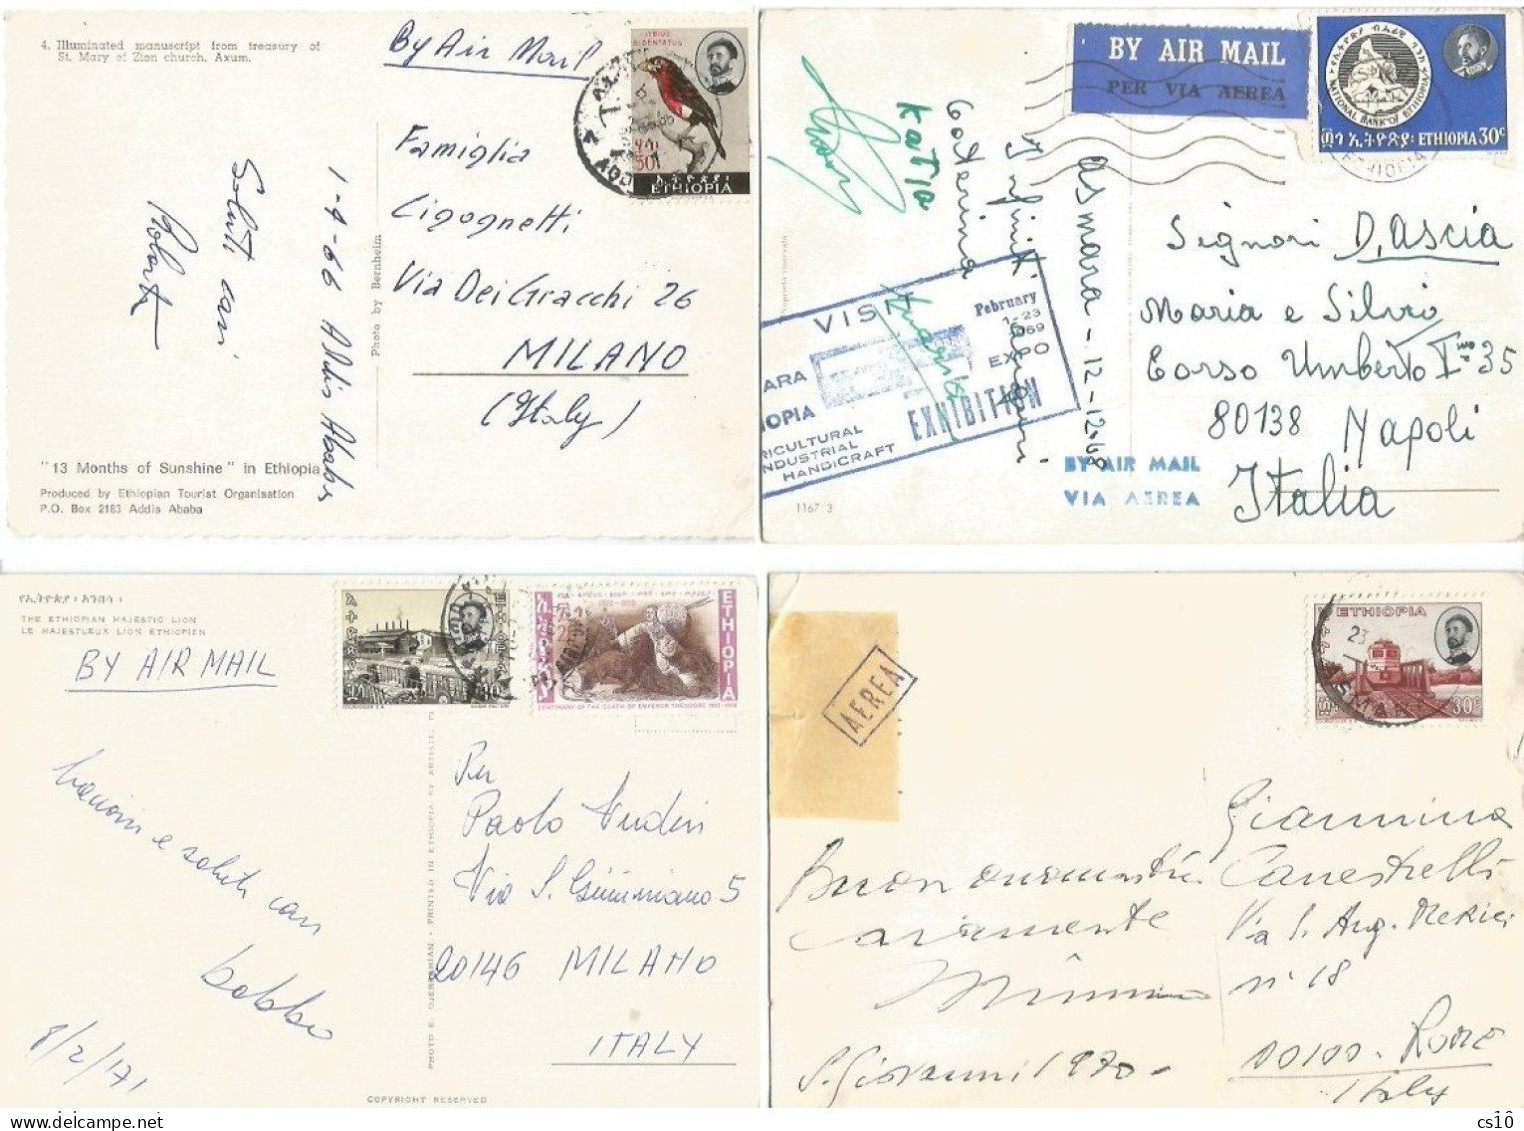 4. Illuminated manuscript from treasury of
St. Mary of Zion church, Axum.
By Air Mail
LYBIUS
BIDENTATUS
50
ETHIOPIA
Famiglia
Cigognetti
Via Dei Gracchi 26
MILANO
(Italy)
1-4-66 Addis Ababa
Saluti cari
Photo by Bernheim
"13 Months of Sunshine" in Ethiopia
Produced by Ethiopian Tourist Organisation
P.O. Box 2183 Addis Ababa
BY AIR MAIL
PER VIA AEREA
NATIONAL BANK OF ETHIOPIA
ኢትዮጵያ ETHIOPIA 30c
Katia
Caterina
Infiniti
Asmara - 12-12-68
VISIT
February
1-23
1969
EXPO
EXHIBITION
INDUSTRIAL
HANDICRAFT
BY AIR MAIL
VIA AEREA
1167 3
Signori D'Ascia
Maria e Silvio
Corso Umberto I 35
80138 Napoli
Italia
የኢትዮጵያ፡ አንበሳ፡
THE ETHIOPIAN MAJESTIC LION
LE MAJESTUEUX LION ETHIOPIEN
BY AIR MAIL
ETHIOPIA
CENTENARY OF THE DEATH OF EMPEROR THEODORE 1868-1968
bacioni e saluti cari
babbo
8/2/71
Per
Paolo
Via S. Gimignano 5
20146 MILANO
ITALY
COPYRIGHT RESERVED
AEREA
ETHIOPIA
23
30c
Buon onomastico
caramente
Mimmo
S. Giovanni 1970
Giannina
Canestrelli
Via S. Ang. Merici
n° 18
00100 - Rome
Italy
cs10